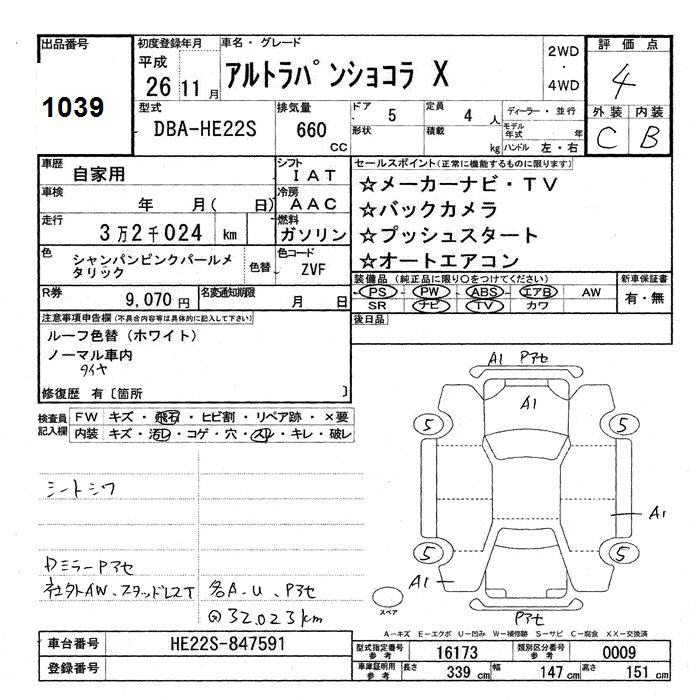 出品番号
1039
初度登録年月
平成
26 11 月
車名・グレード
アルトラパンショコラ X
2WD
・
4WD
評価点
4
外装 内装
C B
型式
DBA-HE22S
排気量
660
CC
ドア 5
形状
定員 4 人
積載 kg
ディーラー・並行
モデル年式 年
ハンドル 左・右
車歴 自家用
シフト IAT
車検 年 月( 日)
冷房 AAC
走行 3万2千024 km
燃料 ガソリン
色 シャンパンピンクパールメタリック
色替
色コード ZVF
R券 9,070 円
名変通知期限 月 日
セールスポイント(正常に機能するものに限ります)
☆メーカーナビ・TV
☆バックカメラ
☆プッシュスタート
☆オートエアコン
装備品 (純正品に限り○をつけてください)
PS PW ABS エアB AW
SR ナビ TV カワ
新車保証書
有・無
後日品
注意事項申告欄(不具合内容等は具体的に記入して下さい)
ルーフ色替(ホワイト)
ノーマル車内
タイヤ
修復歴 有〔箇所 〕
検査員記入欄
FW キズ・飛石・ヒビ割・リペア跡・×要
内装 キズ・汚レ・コゲ・穴・スレ・キレ・破レ
シートシワ
Dミラー Pアセ
社外AW、スタッドレスT
各A・U、Pアセ
@32,023km
A1 Pアセ
A1
5 5
A1
5 5
A1
Pアセ
スペア
A-キズ E-エクボ U-凹み W-補修跡 S-サビ C-腐食 XX-交換済
車台番号 HE22S-847591
登録番号
型式指定番号 参考 16173
類別区分番号 参考 0009
車庫証明用 参考 長さ 339 cm 幅 147 cm 高さ 151 cm